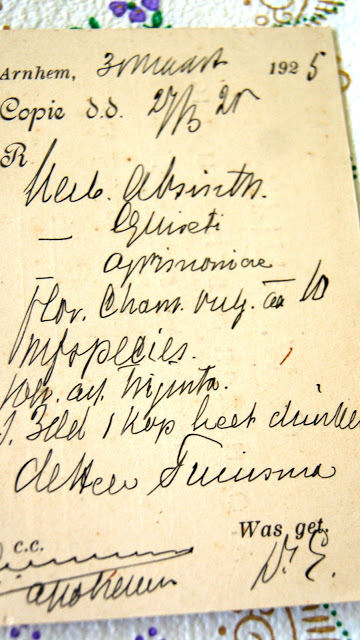 Arnhem, 30 Maart 1925
Copie d.d. 27/3 25
R Herb. Absinth.
— Equiseti
— Agrimoniae
Flor. Cham. vulg. aa 10
M f species.
S. 3dd 1 kop heet drinken
de Heer
c.c. Was get.
apotheker Dr. E.